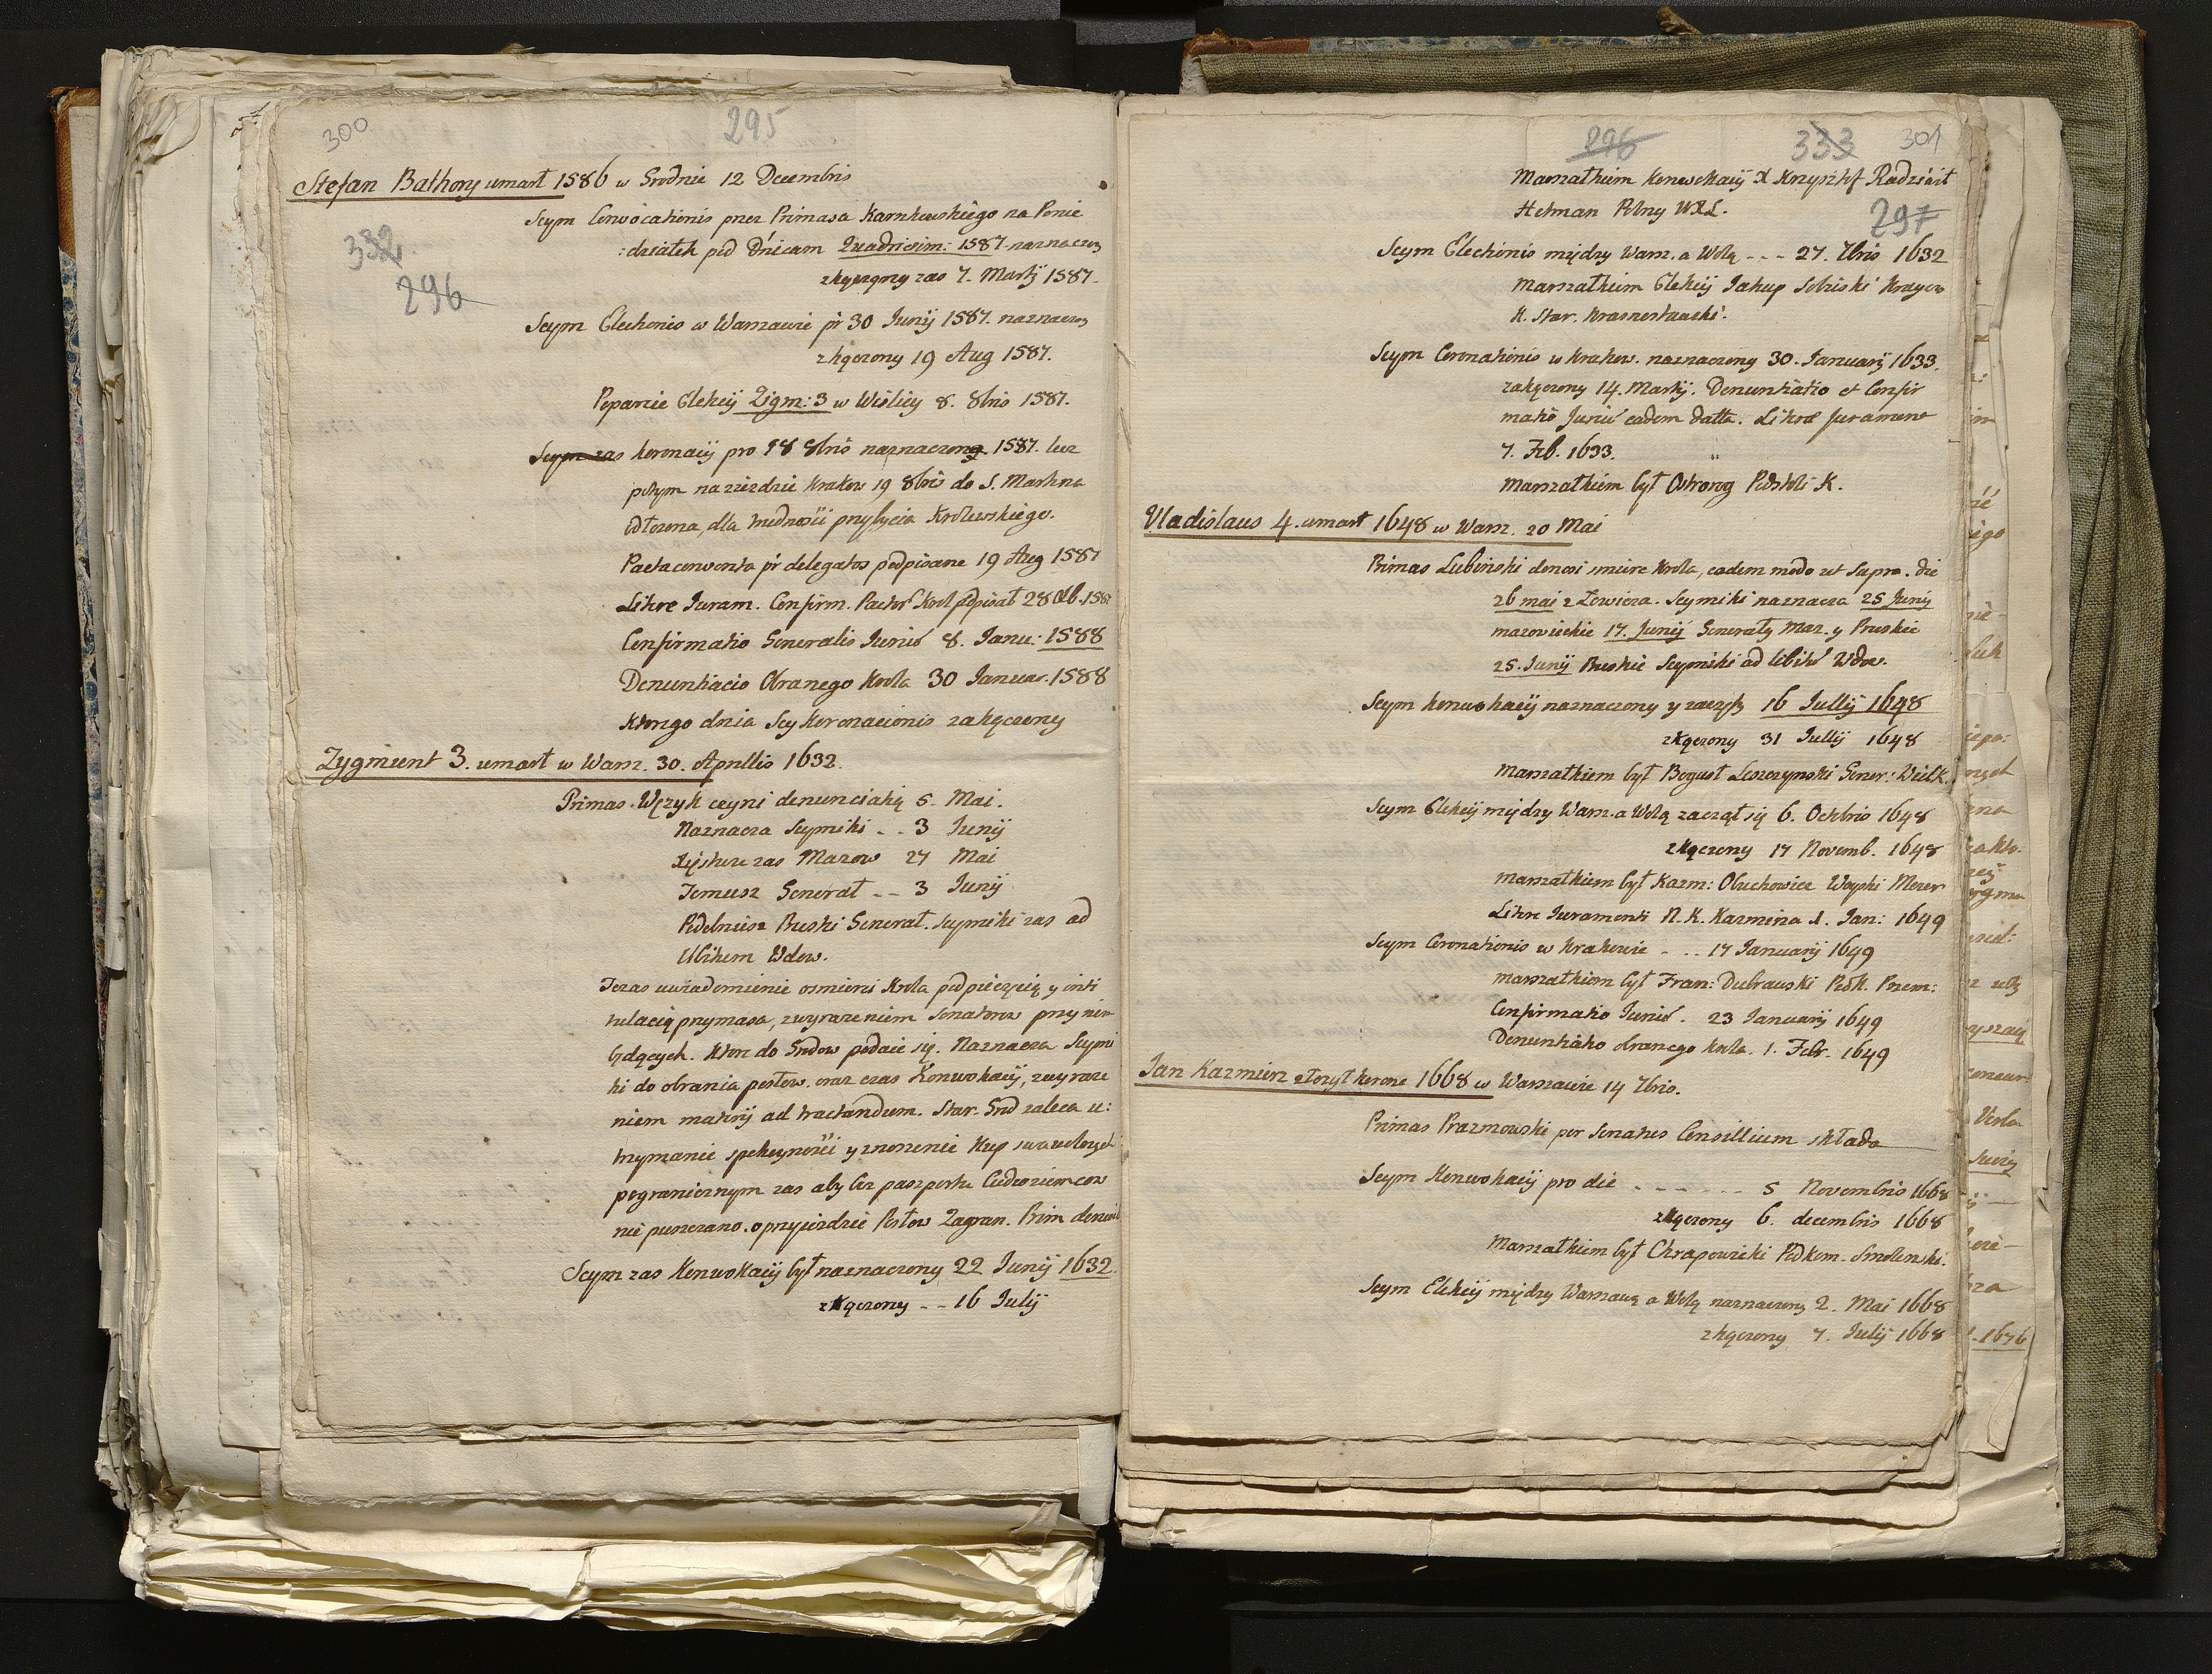 300
295
Stefan Bathory umarł 1586 w Grodnie 12 Decembris
Seym Convocationis przez Primasa Karnkowskiego na Ponie
:działek pod Dnicam Quadriesim: 1587. naznaczony
zkączony zas 7. Martij 1587.
332
296
Seym Electionis w Warszawie pr 30 Junij 1587. naznaczony
zkączony 19 Aug 1587.
Poparcie Elekcij Zigm: 3 w Wiślicy 8. 8bris 1587.
Seym zas koronacij pro 18 8bris naznaczony 1587. lecz
potym na zieździe Krakow 19 8bris do S. Marcina
odłożona, dla trudności przybycia Krolewskiego.
Pacta conventa pr delegatos podpisane 19 Aug 1587
Litrae Juram. Confirm. Pactor Krol podpisał 28 Xb. 1587
Confirmatio Generalis Jurium 8. Janu: 1588
Denuntiacio Obranego Krola 30 Januar. 1588
Ktorego dnia Sey Koronacionis zakączony
Zygmunt 3. umarł w Warsz. 30. Aprillis 1632.
Primas Wężyk czyni denunciatią 5. Mai.
Naznacza Seymiki - - 3 Junij
Xięstwu zas Mazow 27 Mai
Temusz Generał - - 3 Junij
Podobniesz Pruski Generał. Seymiki zas ad
Ubitum Wdow.
Teraz uwiadomienie o smierci Krola pod pieczęcią y inti
tulacią prymasa, z wyrażeniem Senatorow przy nim
będących. Ktore do Grodow podaie się. Naznacza Seymi
ki do obrania posłow. oraz czas Konwokacij, z wyraże
niem materij ad tractandum. Star. Grod zaleca u:
trzymanie spokoyności y znoszenie Kup swawolnych
pogranicznym zas aby bez paszportu Cudzoziemcow
nie puszczano. o przyieździe Posłow Zagran. Prim donosili
Seym zas Konwokacij był naznaczony 22 Junij 1632.
zkączony - - 16 Julij
296
333
301
297
Marszałkiem Konwokacij X Krzysztof Radziwił
Hetman Polny WXL.
Seym Electionis między Warsz. a Wolą - - - 27. 7bris 1632
Marszałkiem Elekcij Jakup Sobieski Krayczy
K. Star. Krasnostawski.
Seym Coronationis w Krakow. naznaczony 30. Januarij 1633.
zakączony 14. Martij. Denuntiatio et Confir
matio Jurium eadem datta. Litrae Juramen
7. Feb. 1633.
Marszałkiem był Ostrorog Podstoli K.
Vladislaus 4. umarł 1648 w Warsz. 20 Mai
Primas Lubinski donosi smierc Krola, eodem modo ut supra. die
26 mai z Łowicza. Seymiki naznacza 25 Junij
mazowieckie 17. Junij Generały Maz. y Pruskie
25. Junij Pruskie Seymiki ad libitum Wdow.
Seym konwokacij naznaczony y zaczęty 16 Jullij 1648
zkączony 31 Jullij 1648
Marszałkiem był Bogusł Leszczynski Gener: Wielk.
Seym Elekcij między Warsz. a Wolą zaczął się 6. Octobris 1648
zkączony 17 Novemb. 1648
Marszałkiem był Kazm: Obuchowicz Woyski Mozer
Litrae Juramenti R. K. Kazmirza 1. Jan: 1649
Seym Coronationis w Krakowie - - - 17 Januarij 1649
Marszałkiem był Fran: Dubrawski Podk. Przem:
Confirmatio Jurium. 23 Januarij 1649
Denuntiatio obranego Krola. 1. Febr. 1649
Jan Kazmirz złożył korone 1668 w Warszawie 14 7bris.
Primas Prazmowski per Senatus Consillium składa
Seym Konwokacij pro die - - - - - - - 5 Novembris 1668
zkączony 6. decembris 1668
Marszałkiem był Chrapowicki Podkom. Smolenski.
Seym Elekcij między Warszawą a Wolą naznaczony 2. Mai 1668
zkączony 7. Julij 1668
1676